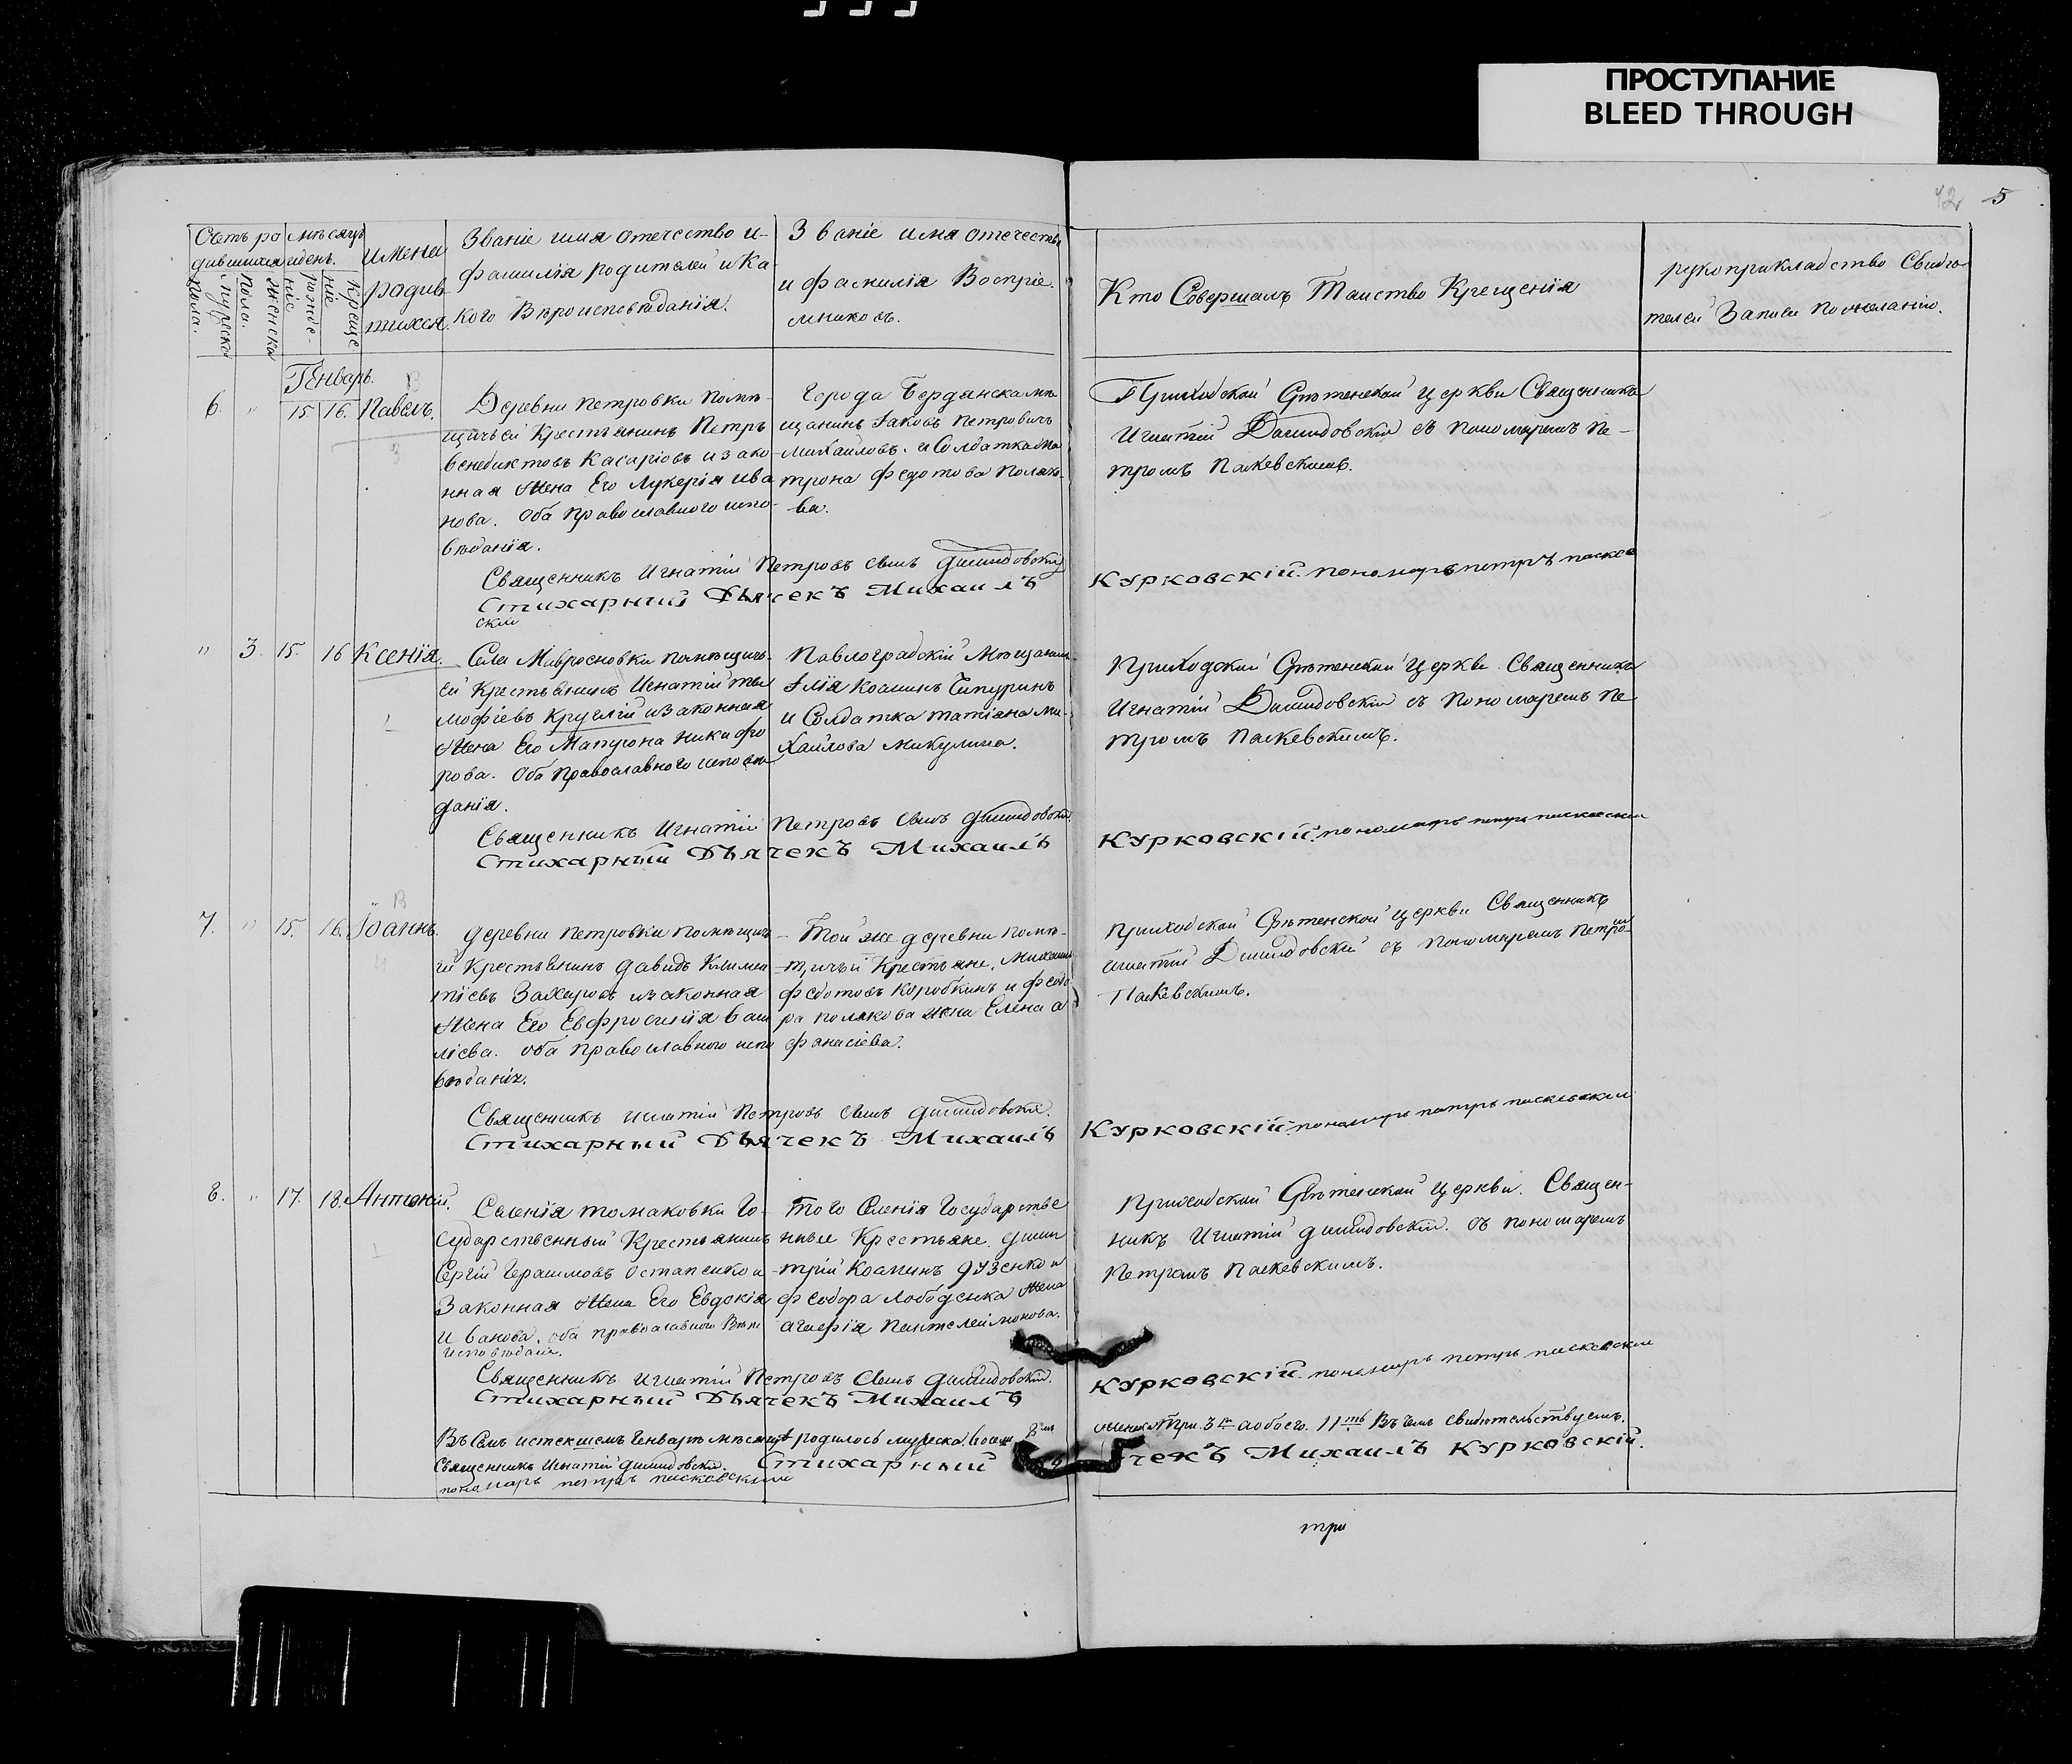 ПРОСТУПАНИЕ
BLEED THROUGH
42 5
Счетъ ро
дившихся
Мужеска
пола.
женска
пола.
мѣсяцъ
и день.
рожде-
ніе
Креще
ніе
имена
родив
шихся.
Званіе имя отечество и
фамилія родителей и ка
кого Вѣроисповѣданія.
Званіе имя отечество
и фамилія Воспріе
мниковъ.
Кто Совершалъ Таинство Крещенія
рукоприкладство Свидѣ
телей Записи по желанію.
Генварь.
6. " 15 16. Павелъ.
Деревни Петровки помѣ-
щичьей Крестьянинъ Петръ
Венедиктовъ Касаріовъ и зако
нная жена Его Лукерія ива
нова. Оба православного испо
вѣданія.
Города Бердянска мѣ
щанинъ Іаковъ Петровичъ
Михайловъ. и Солдатка Ма
трона Федотова Поляко
ва.
Приходской Срѣтенской церкви Священникъ
Игнатій Демидовскій съ пономаремъ Пе-
тромъ Паскевскимъ.
Священникъ Игнатій Петровъ сынъ Демидовскій
Стихарный Дьячекъ Михаилъ Курковскій. пономарь петръ паскев
скій
" 3. 15. 16 Ксенія.
Села Мавросновки помѣщичь
ей Крестьянинъ Игнатій Ти
мофіевъ Круглій и законная
жена Его Матрона Никифо
рова. Оба православного исповѣ
данія.
Павлоградскій Мѣщанинъ
Ілія Косминъ Чипуринъ
и Солдатка Татіана Ми-
хайлова Микулина.
Приходской Срѣтенской Церкви Священникъ
Игнатій Демидовскій съ Пономаремъ Пе
тромъ Паскевскимъ.
Священникъ Игнатій Петровъ сынъ Демидовскій.
Стихарный Дьячекъ Михаилъ Курковскій. пономарь петръ паскевскій
7. " 15. 16. Іоаннъ.
деревни Петровки помѣщичь
ій Крестьянинъ Давидъ Климен
тіевъ Захаровъ и законная
жена Его Евфросинія Васи
ліева. оба православного испо
вѣданія.
Той же деревни помѣ-
щичьи Крестьяне. Михаилъ
Федотовъ Коробкинъ и Федо
ра Полякова жена Елена А
фанасіева.
Приходской Срѣтенской церкви Священникъ
Игнатій Демидовскій съ Пономаремъ Петро
Паскевскимъ.
Священникъ Игнатій Петровъ сынъ Демидовскій.
Стихарный Дьячекъ Михаилъ Курковскій. пономарь петръ паскевскій
8. " 17. 18. Антоній.
Селенія томаковки Го-
сударственный Крестьянинъ
Сергій Герасимовъ Остапенко и
Законная жена Его Евдокія
Иванова. оба православного Вѣро
исповѣданія.
Того Селенія Государстве
нные Крестьяне. Дими
трій Косминъ Дузенко и
Феодора Лободенка жена
Агафія Пантелеймонова.
Приходской Срѣтенской Церкви. Священ-
никъ Игнатій Демидовскій. съ пономаремъ
Петромъ Паскевскимъ.
Священникъ Игнатій Петровъ сынъ Демидовскій.
Стихарный Дьячекъ Михаилъ Курковскій. пономарь петръ паскевскій
Въ Семъ истекшемъ Генварѣ мѣсяцѣ родилось мужеска. восемь женска три. 3 а обоего. 11ть Въ чемъ свидѣтельствуемъ.
Священникъ Игнатій Демидовскій. Стихарный чекъ Михаилъ Курковскій.
пономарь петръ паскевскій
три